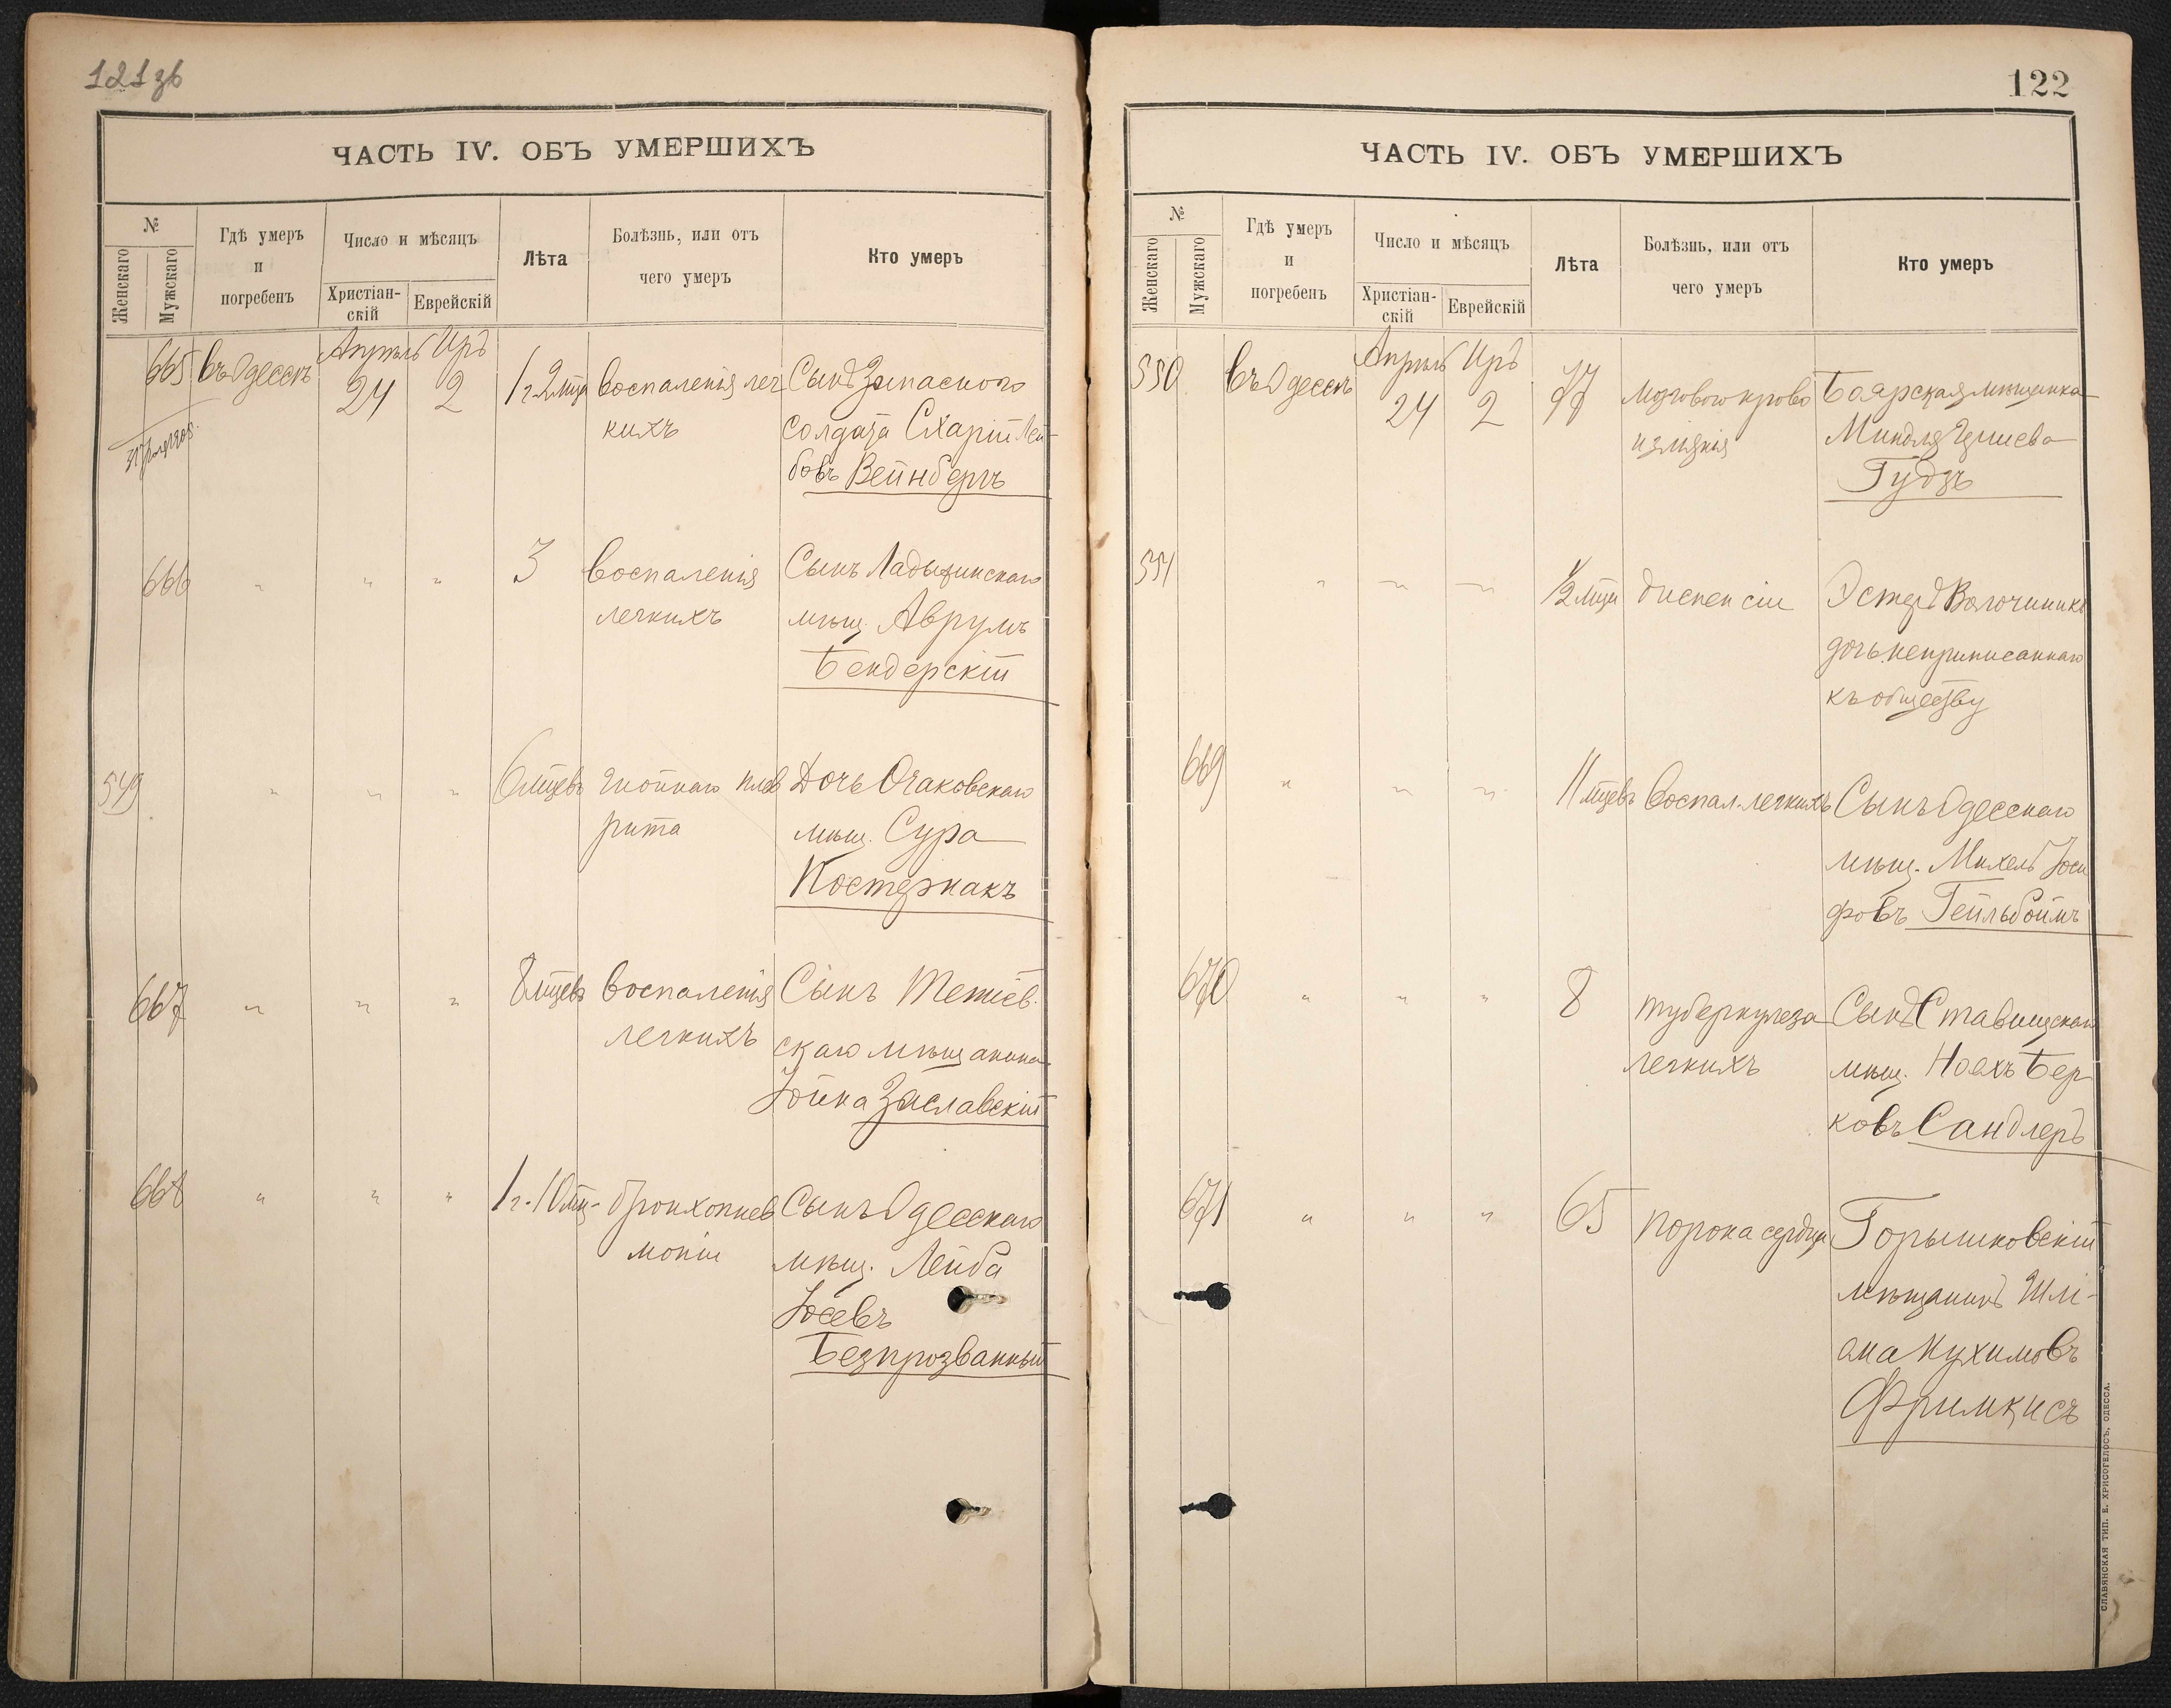 121зв
ЧАСТЬ IV. ОБЪ УМЕРШИХЪ
№
Женскаго
Мужскаго
Гдѣ умеръ
и
погребенъ
Число и мѣсяцъ
Христіан-
скій
Еврейскій
Лѣта
Болѣзнь, или отъ
чего умеръ
Кто умеръ
665 въ Одессѣ Апрѣль 24 Иръ 2 1 г. 2 мца воспаленія лег
кихъ
Сынъ Запасного
солдата Схарій Лей-
бовъ Вейнбергъ
666 " " " 3 воспаленія
легкихъ
Сынъ Ладыжинскаго
мѣщ. Аврумъ
Бендерскій
549 " " " 6 мцевъ гнойнаго плев
рита
Дочь Очаковскаго
мѣщ. Сура
Костернакъ
667 " " " 8 мцевъ воспаленія
легкихъ
Сынъ Тетіев-
скаго мѣщанина
Іойна Заславскій
668 " " " 1 г. 10 мц. бронхопнев
моніи
Сынъ Одесскаго
мѣщ. Лейба
Іосевъ
Безпрозванный
122
ЧАСТЬ IV. ОБЪ УМЕРШИХЪ
№
Женскаго
Мужскаго
Гдѣ умеръ
и
погребенъ
Число и мѣсяцъ
Христіан-
скій
Еврейскій
Лѣта
Болѣзнь, или отъ
чего умеръ
Кто умеръ
550 въ Одессѣ Апрѣль 24 Иръ 2 77 мозгового крово
изліянія
Боярская мѣщанка
Миндля
Гудзъ
551 " " " 1/2 мца диспепсіи
Эстеръ
дочь неприписаннаго
къ обществу
669 " " " 11 мцевъ воспал. легкихъ
Сынъ Одесскаго
мѣщ. Михель Іоси
фовъ Гейльбоймъ
670 " " " 8 туберкулеза
легкихъ
Сынъ Ставищскаго
мѣщ. Ноехъ Бер
ковъ Сандлеръ
671 " " " 65 порока сердца
Горышковскій
мѣщанинъ Шлі-
ома Нухимовъ
Фримкисъ
СЛАВЯНСКАЯ ТИП. Е. ХРИСОГЕЛОСЪ, ОДЕССА.